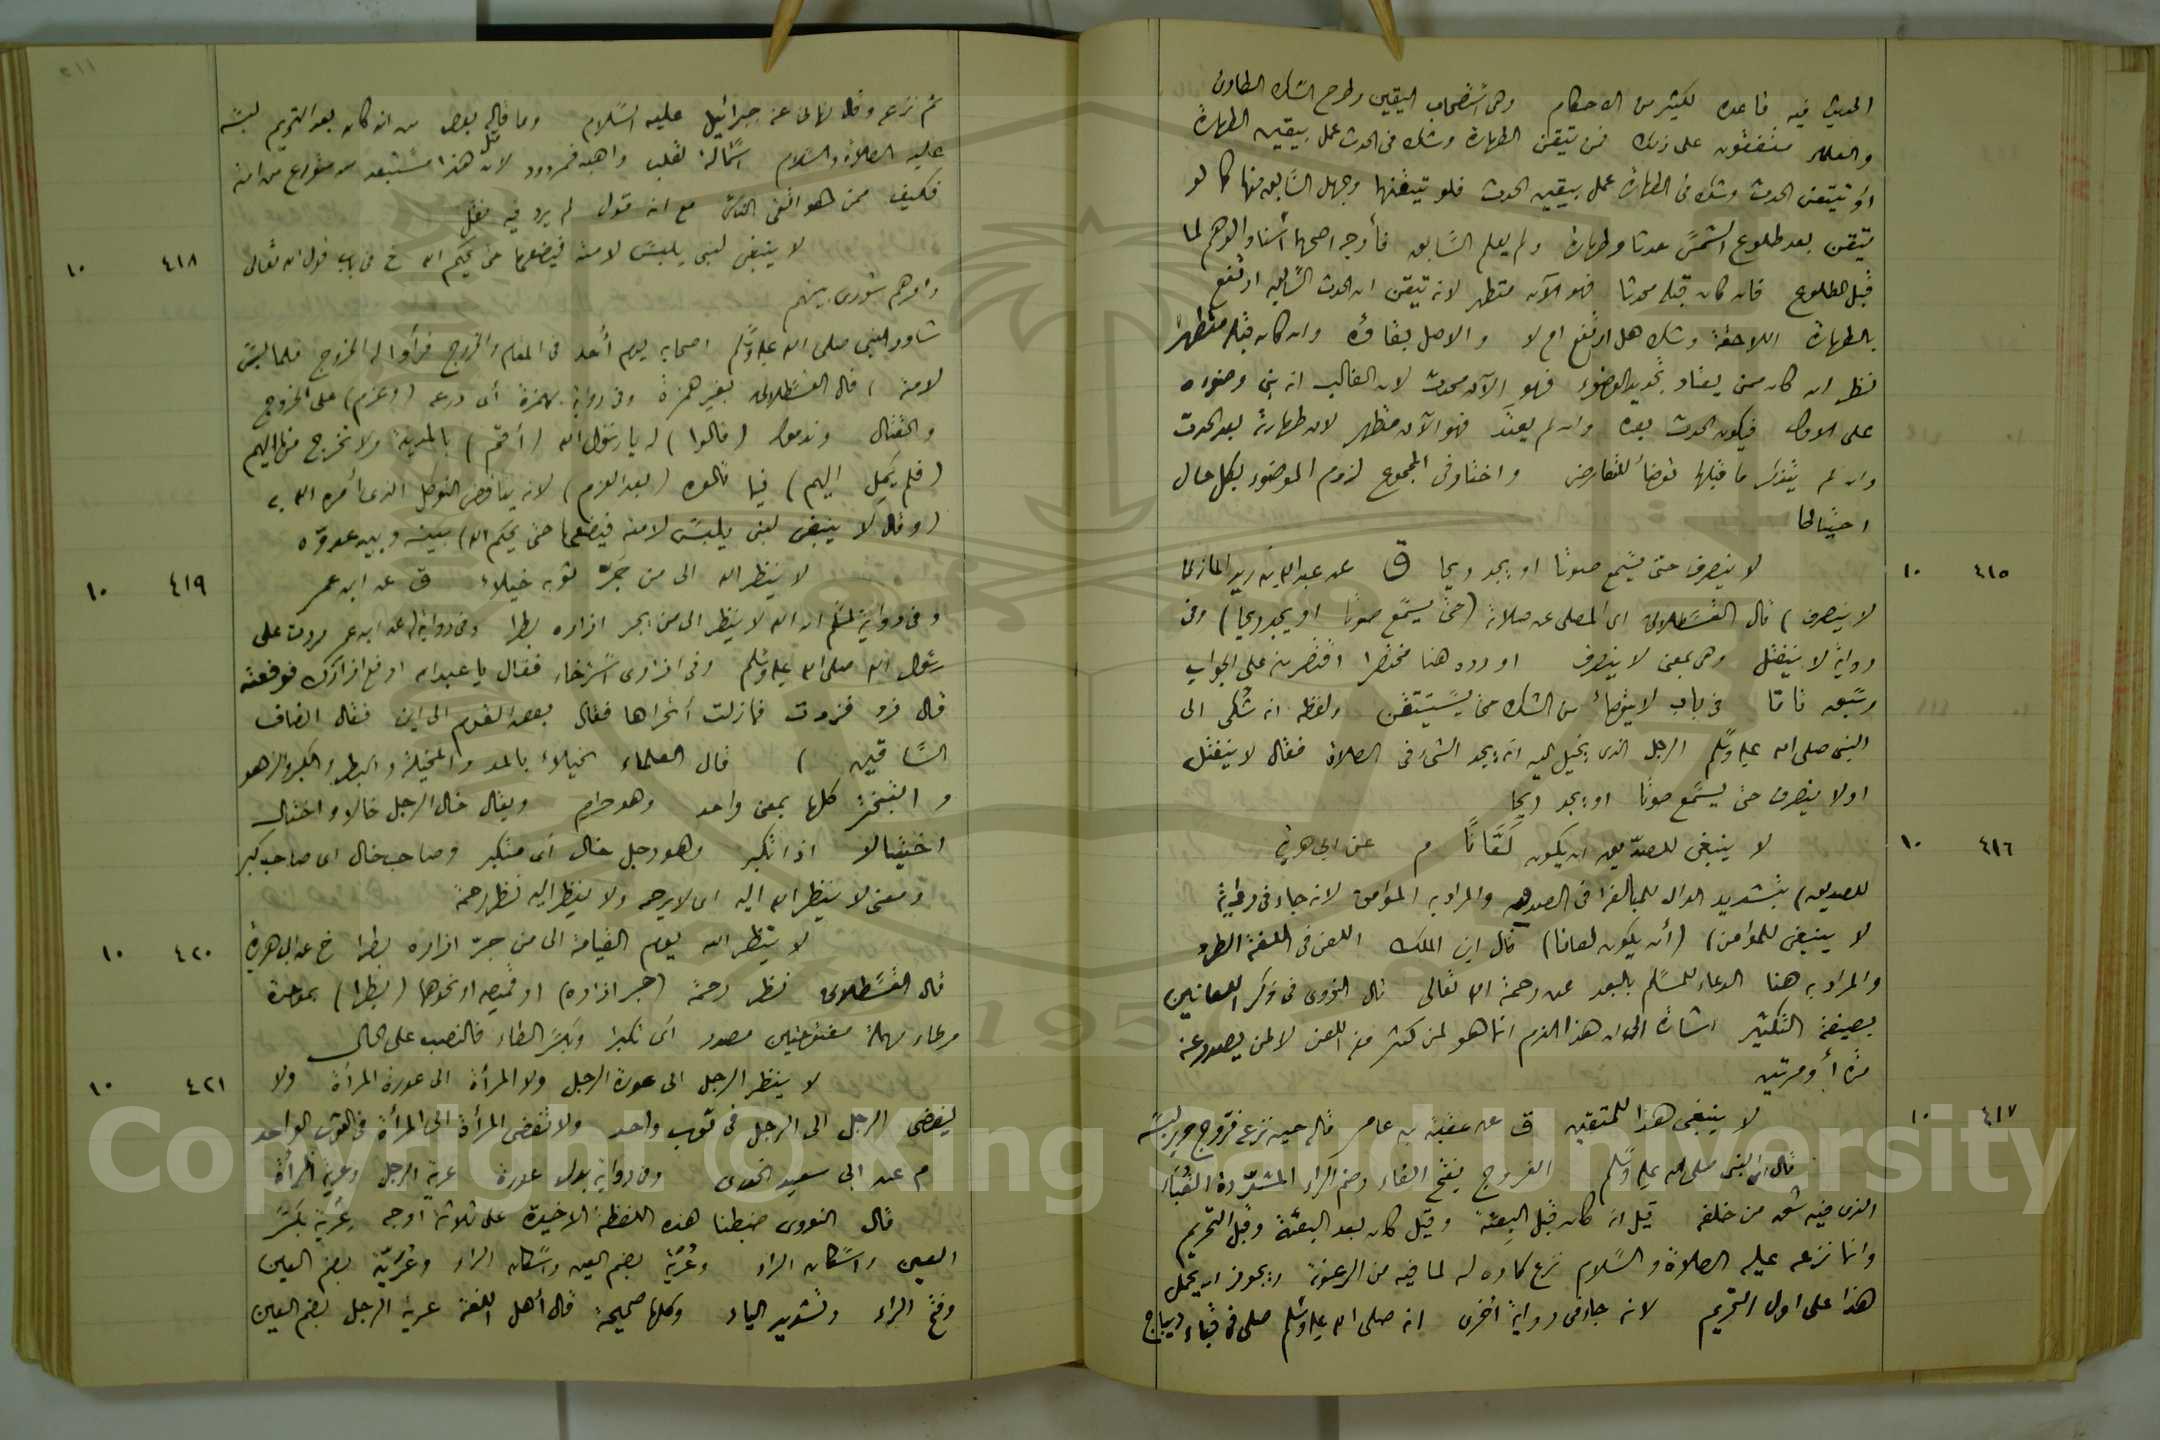 الحديث فيه قاعدة لكثير من الاحكام وهى استصحاب اليقين وطرح الشك الطارئ
والعلماء متفقون على ذلك فمن تيقن الطهارة وشك فى الحدث عمل بيقين الطهارة
او تيقن الحدث وشك فى الطهارة عمل بيقين الحدث فلو تيقنهما وجهل السابق منهما كما لو
تيقن بعد طلوع الشمس حدثا وطهارة ولم يعلم السابق فأوجه اصحها اسناد الوهم لما
قبل الطلوع فان كان قبله محدثا فهو الآن متطهر لانه تيقن ان الحدث السابق ارتفع
بالطهارة اللاحقة وشك هل ارتفع ام لا والاصل بقاؤه وان كان قبله متطهرا
نظر ان كان ممن يعتاد تجديد الوضوء فهو الآن محدث لان الغالب انه بنى وضوءه
على الاول فيكون الحدث بعده وان لم يعتد فهو الآن متطهر لان طهارته بعد الحدث
وان لم يتذكر ما قبلهما توضأ للتعارض واختار فى المجموع لزوم الوضوء بكل حال
احتياطا
٤١٥ ١٠ لا ينصرف حتى يسمع صوتا او يجد ريحا ق عن عبد الله بن زيد المازنى
لا ينصرف) قال القسطلانى اى المصلى عن صلاته (حتى يسمع صوتا او يجد ريحا) وفى
رواية لا ينفتل وهى بمعنى لا ينصرف اورده هنا مختصرا اقتصر منه على الجواب
وسبق تاما فى باب لا يتوضأ من الشك حتى يستيقن ولفظه انه شكى الى
النبى صلى الله عليه وسلم الرجل الذى يخيل اليه انه يجد الشئ فى الصلاة فقال لا ينفتل
او لا ينصرف حتى يسمع صوتا او يجد ريحا
٤١٦ ١٠ لا ينبغى للصديق ان يكون لعّانًا م عن ابى هريرة
للصديق) بتشديد الدال للمبالغة فى الصدق والمراد به المؤمن لانه جاء فى رواية
لا ينبغى للمؤمن) (أن يكون لعانا) قال ابن الملك اللعن فى اللغة الطرد
والمراد به هنا الدعاء للمسلم بالبعد عن رحمة الله تعالى قال النووى فى ذكر اللعانين
بصيغة التكثير اشارة الى ان هذا الذم انما هو لمن كثر منه اللعن لا لمن يصدر عنه
مرة أو مرتين
٤١٧ ١٠ لا ينبغى هذا للمتقين ق عن عقبة بن عامر قاله حين نزع فروج حرير لبسه
قال ان النبى صلى الله عليه وسلم الفروج بفتح الفاء وضم الراء المشددة القباء
الذى فيه شق من خلفه قيل انه كان قبل البعثة وقيل كان بعد البعثة وقبل التحريم
وانما نزعه عليه الصلاة والسلام نزع كاره له لما فيه من الرعونة ويجوز ان يحمل
هذا على اول التحريم لانه جاء فى رواية أخرى انه صلى الله عليه وسلم صلى فى قباء ديباج
ثم نزعه وقال نهانى عنه جبرائيل عليه السلام وما قاله بعض من انه كان بعد التحريم لبسه
عليه الصلاة والسلام استمالة لقلب واهبه فمردود لان مثل هذا مستبعد من متورع من امته
فكيف ممن هو اتقى الناس مع انه قول لم يرد فيه نقل
٤١٨ ١٠ لا ينبغى لنبى يلبس لامته فيضعها حتى يحكم الله خ فى باب قول الله تعالى
وامرهم شورى بينهم
شاور النبى صلى الله عليه وسلم اصحابه يوم أحد فى المقام والخروج فرأوا له الخروج فلما لبس
لامته ، قال القسطلانى بغير همزة وفى رواية بهمزة أى درعه (وعزم) على الخروج
والقتال وندموا (قالوا) له يا رسول الله (أقم) بالمدينة ولا تخرج منها اليهم
(فلم يمل اليهم) فيما قالوه (بعد العزم) لانه يناقض التوكل الذى أمره الله به
(وقال لا ينبغى لنبى يلبس لامته فيضعها حتى يحكم الله) بينه وبين عدوه
٤١٩ ١٠ لا ينظر الله الى من جرّ ثوبه خيلاء ق عن ابن عمر
وفى رواية لمسلم ان الله لا ينظر الى من يجر ازاره بطرا وفى رواية له عن ابن عمر مررت على
رسول الله صلى الله عليه وسلم وفى ازارى استرخاء فقال يا عبد الله ارفع ازارك فرفعته
قال زد فزدت فما زلت أتحراها فقال بعض القوم الى اين فقال انصاف
الساقين ) قال العلماء الخيلاء بالمد والمخيلة والبطر والكبر والزهو
والتبختر كلها بمعنى واحد وهو حرام ويقال خال الرجل خالا واختال
اختيالا اذا تكبر وهو رجل خال أى متكبر وصاحب خال اى صاحب كبر
ومعنى لا ينظر الله اليه اى لا يرحمه ولا ينظر اليه نظر رحمة
٤٢٠ ١٠ لا ينظر الله يوم القيامة الى من جرّ ازاره بطرا خ عن ابى هريرة
قال القسطلانى نظر رحمة (جر ازاره) او قميصه او نحوها (بطرا) بموحدة
وطاء مهملة مفتوحتين مصدر أى تكبرا وبكسر الطاء فالنصب على الحال
٤٢١ ١٠ لا ينظر الرجل الى عورة الرجل ولا المرأة الى عورة المرأة ولا
يفضى الرجل الى الرجل فى ثوب واحد ولا تفضى المرأة الى المرأة فى الثوب الواحد
م عن ابى سعيد الخدرى وفى رواية بدل عورة عرية الرجل وعرية المرأة
قال النووى ضبطنا هذه اللفظة الاخيرة على ثلاثة اوجه عِرْية بكسر
العين واسكان الراء وعُرْية بضم العين واسكان الراء وعُرَيّة بضم العين
وفتح الراء وتشديد الياء وكلها صحيحة قال أهل اللغة عرية الرجل بضم العين
Copyright © King Saud University
1957